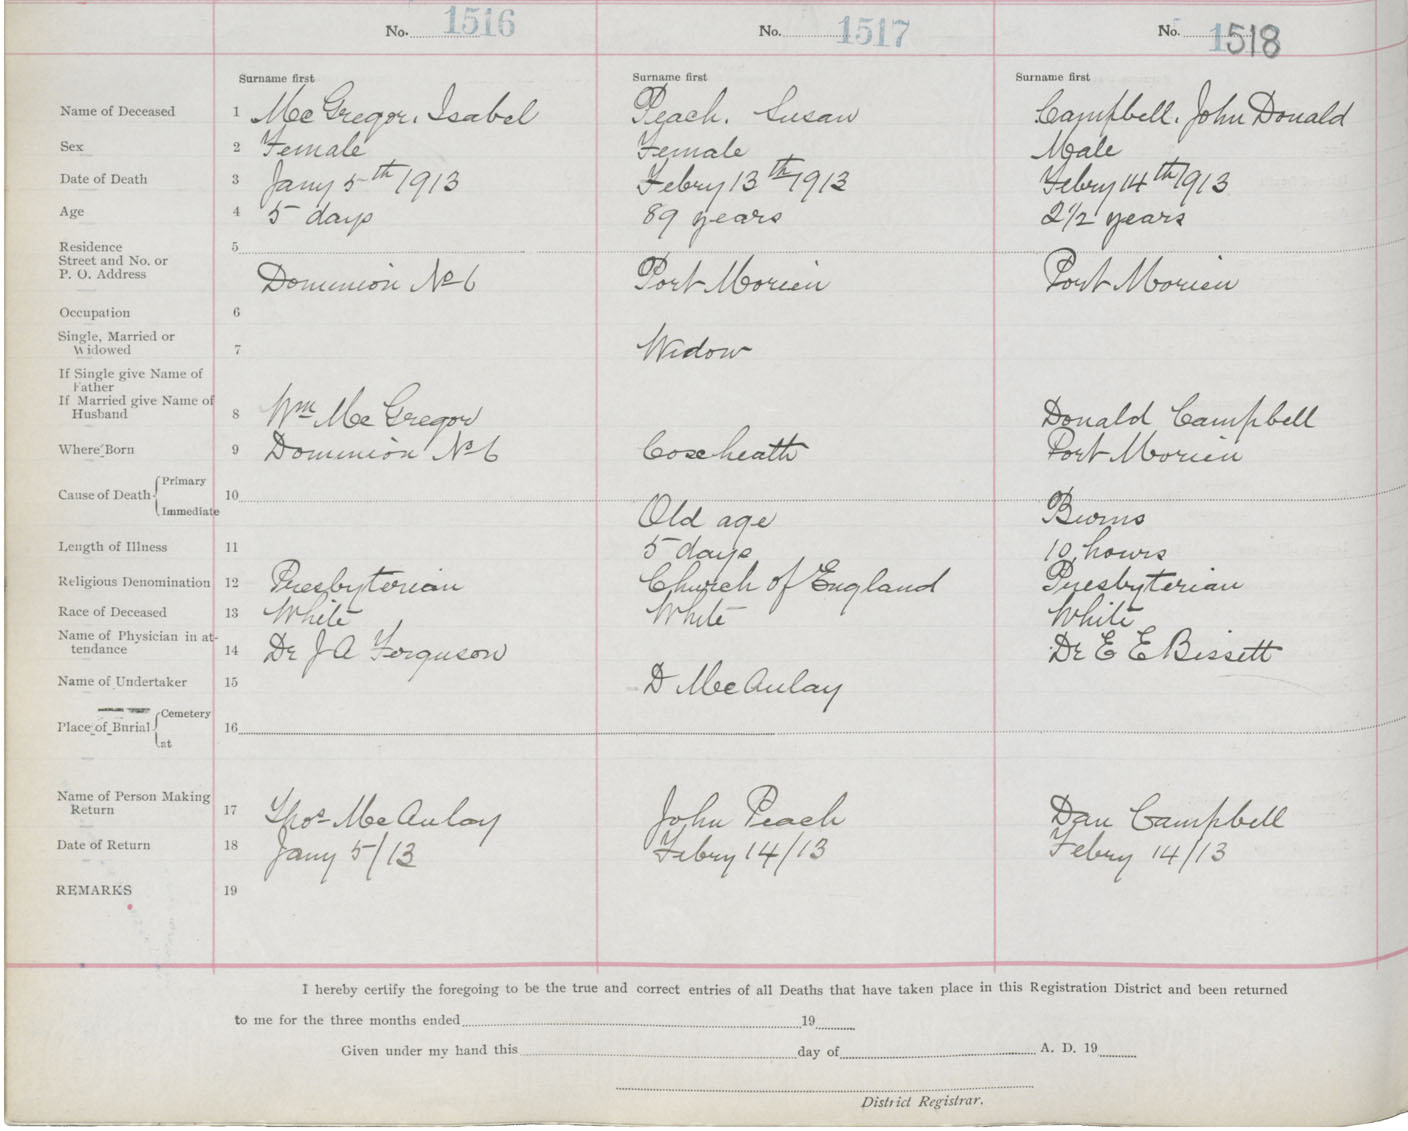 No. 1516 No. 1517 No. 1518
Surname first Surname first Surname first
Name of Deceased 1 McGregor, Isabel Peach, Susan Campbell, John Donald
Sex 2 Female Female Male
Date of Death 3 Jany 5th 1913 Febry 13th 1913 Febry 14th 1913
Age 4 5 days 89 years 2 1/2 years
Residence 5
Street and No. or
P. O. Address Dominion No 6 Port Morien Port Morien
Occupation 6
Single, Married or
Widowed 7 Widow
If Single give Name of
Father
If Married give Name of
Husband 8 Wm McGregor Donald Campbell
Where Born 9 Dominion No 6 Coxheath Port Morien
Primary
Cause of Death 10
Immediate Old age Burns
Length of Illness 11 5 days 10 hours
Religious Denomination 12 Presbyterian Church of England Presbyterian
Race of Deceased 13 White White White
Name of Physician in at-
tendance 14 Dr J A Ferguson Dr E E Bissett
Name of Undertaker 15 D McAulay
Cemetery
Place of Burial 16
at
Name of Person Making
Return 17 Thos McAulay John Peach Dan Campbell
Date of Return 18 Jany 5/13 Febry 14/13 Febry 14/13
REMARKS 19
I hereby certify the foregoing to be the true and correct entries of all Deaths that have taken place in this Registration District and been returned
to me for the three months ended 19
Given under my hand this day of A. D. 19
District Registrar.